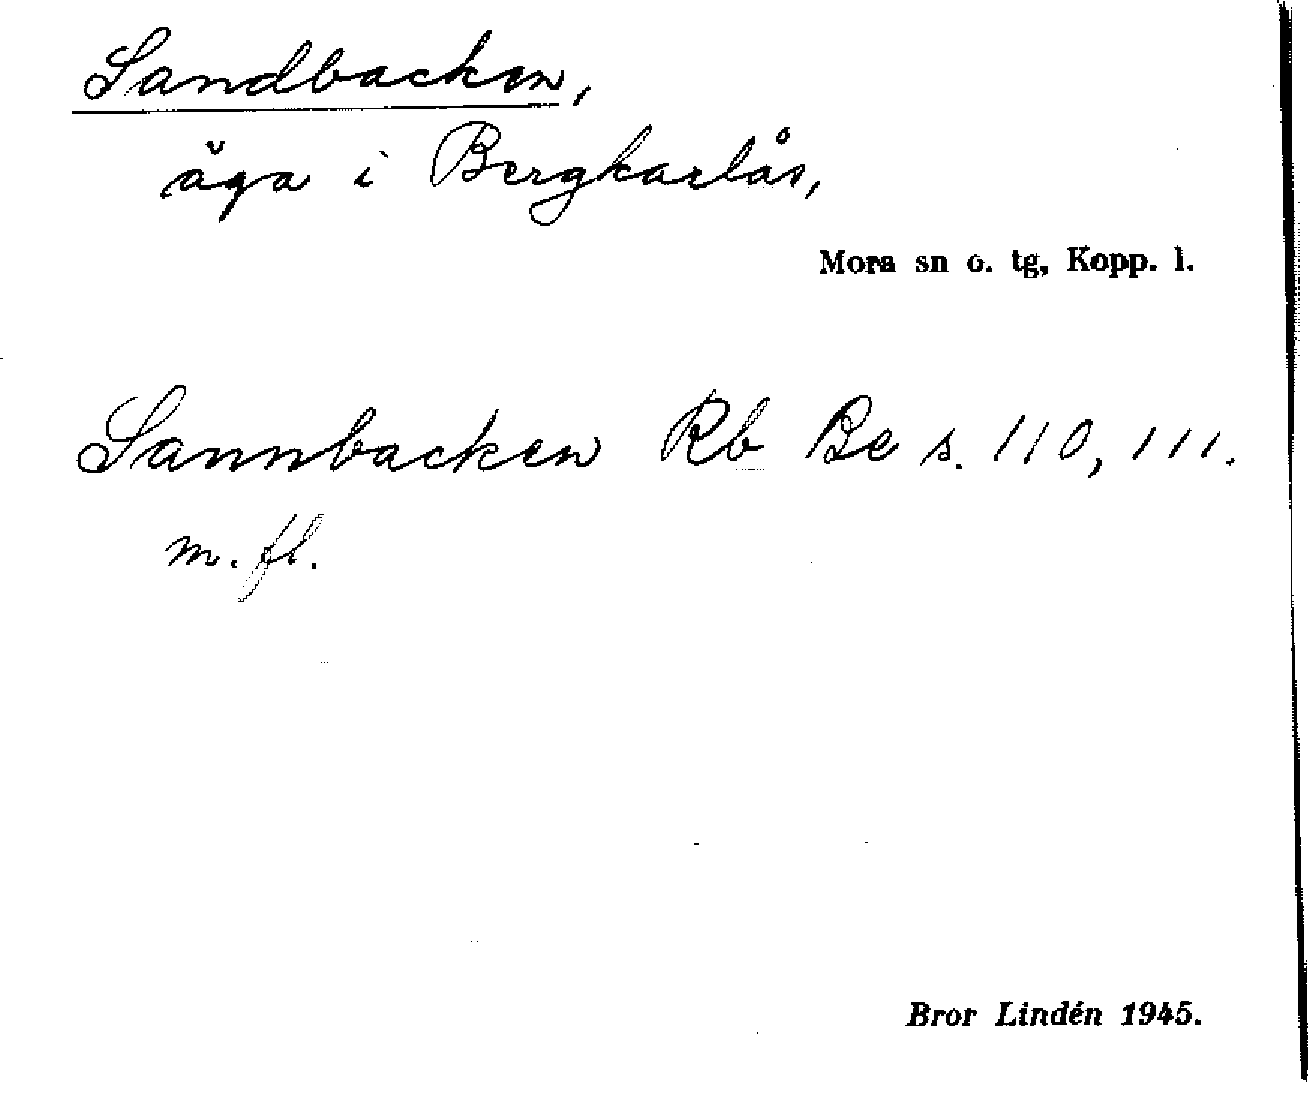 Sandbacken,
äga i Bergkarlås,
Mora sn o. tg, Kopp. l.
Sannbacken Rb Be s. 110, 111.
m. fl.
Bror Lindén 1945.